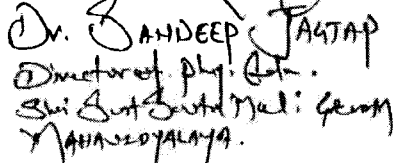 Dr. SANDEEP JAGTAP
Director of Phy. Edn.
Shri Sant Savta Mali Gramin
MAHAVIDYALAYA.